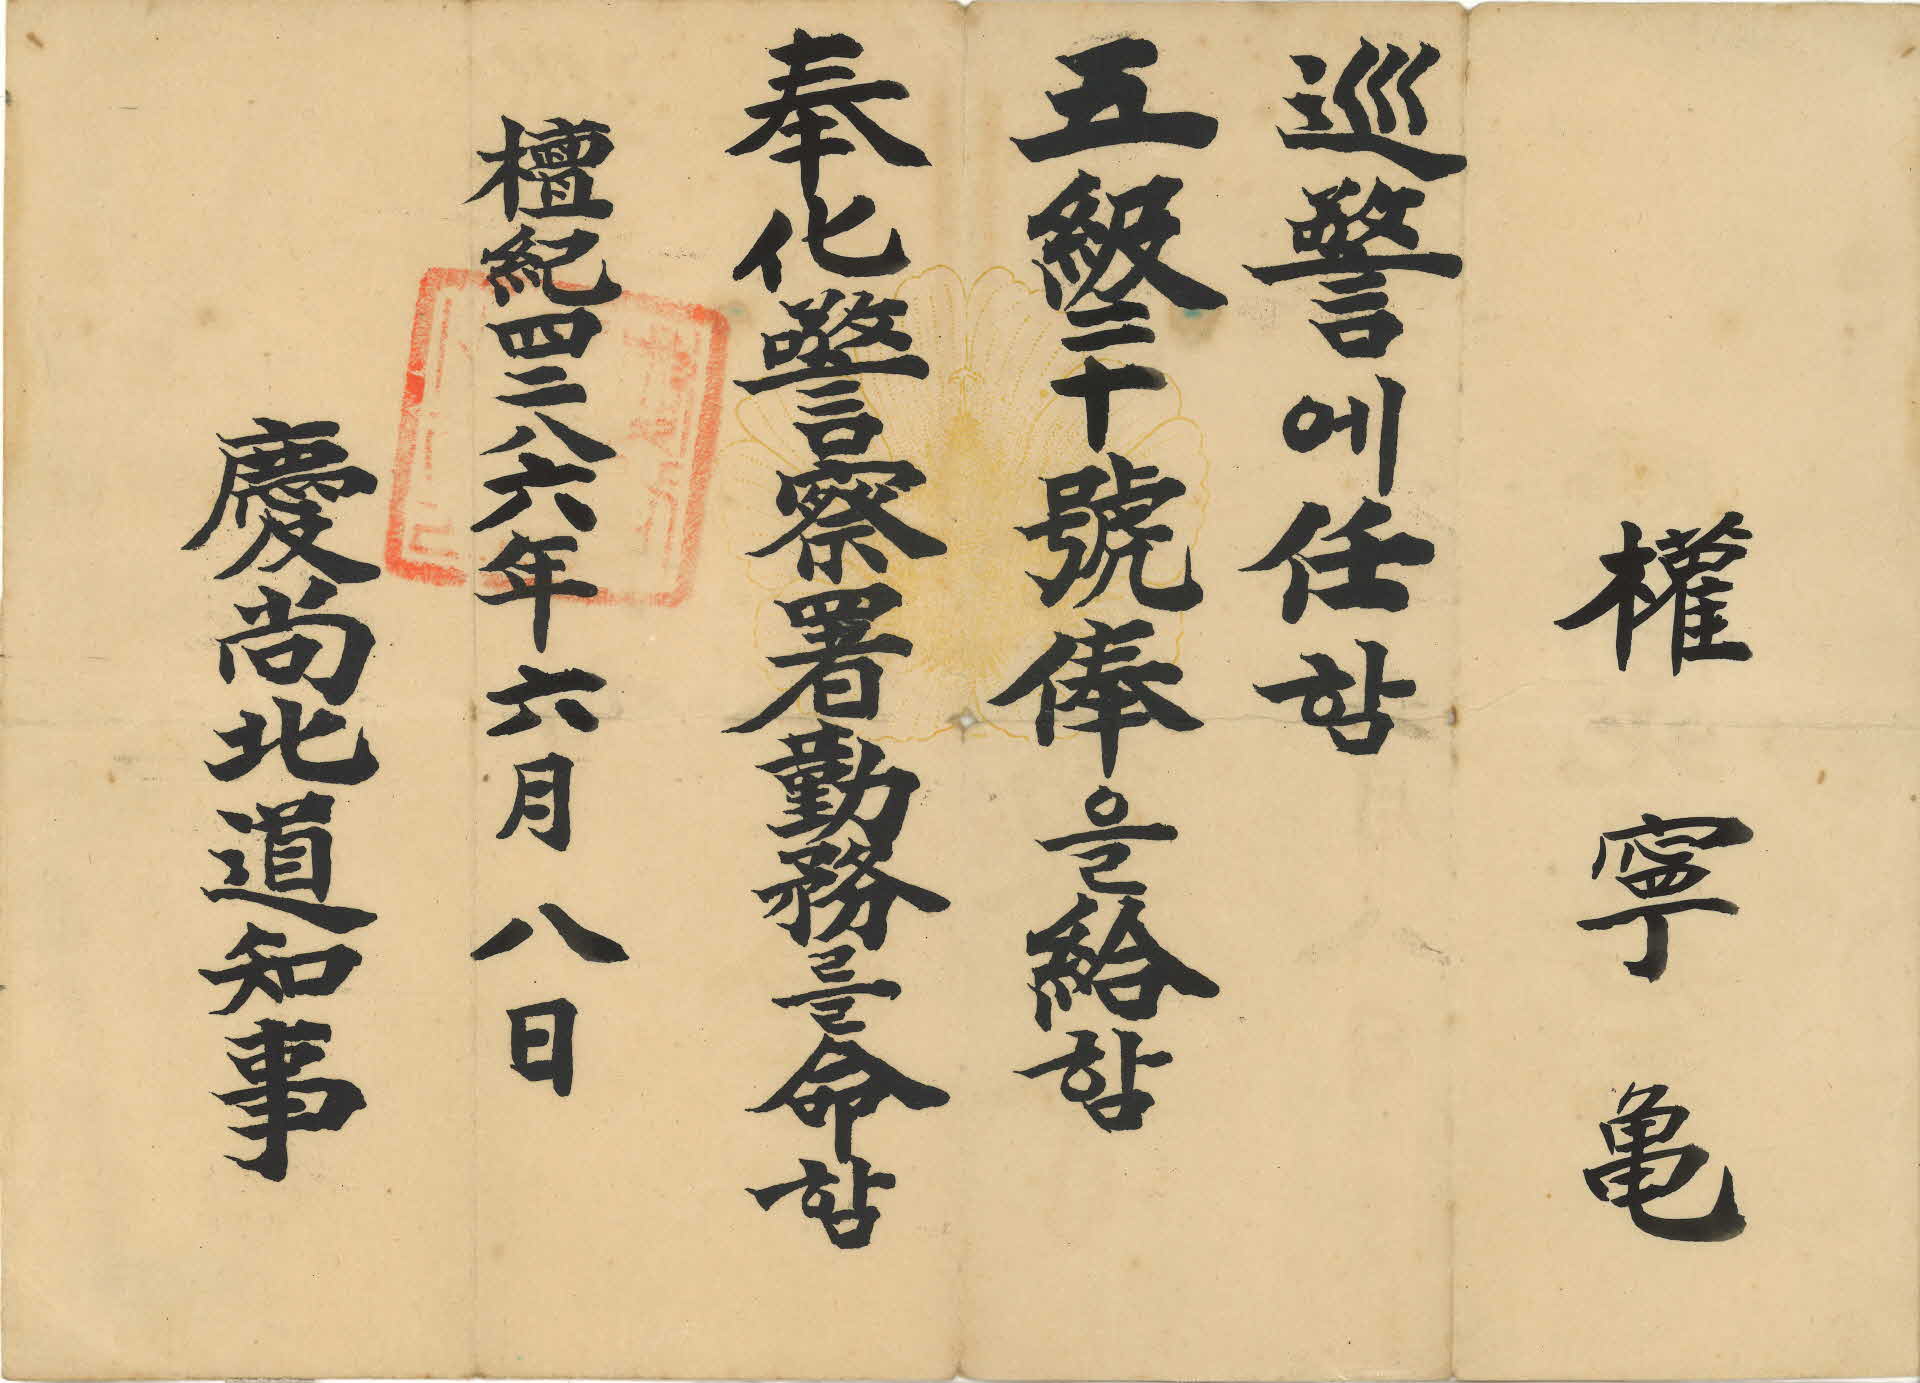 權寧亀
巡警에任함
五級二十號俸을給함
奉化警察署勤務를命함
檀紀四二八六年六月八日
慶尙北道知事